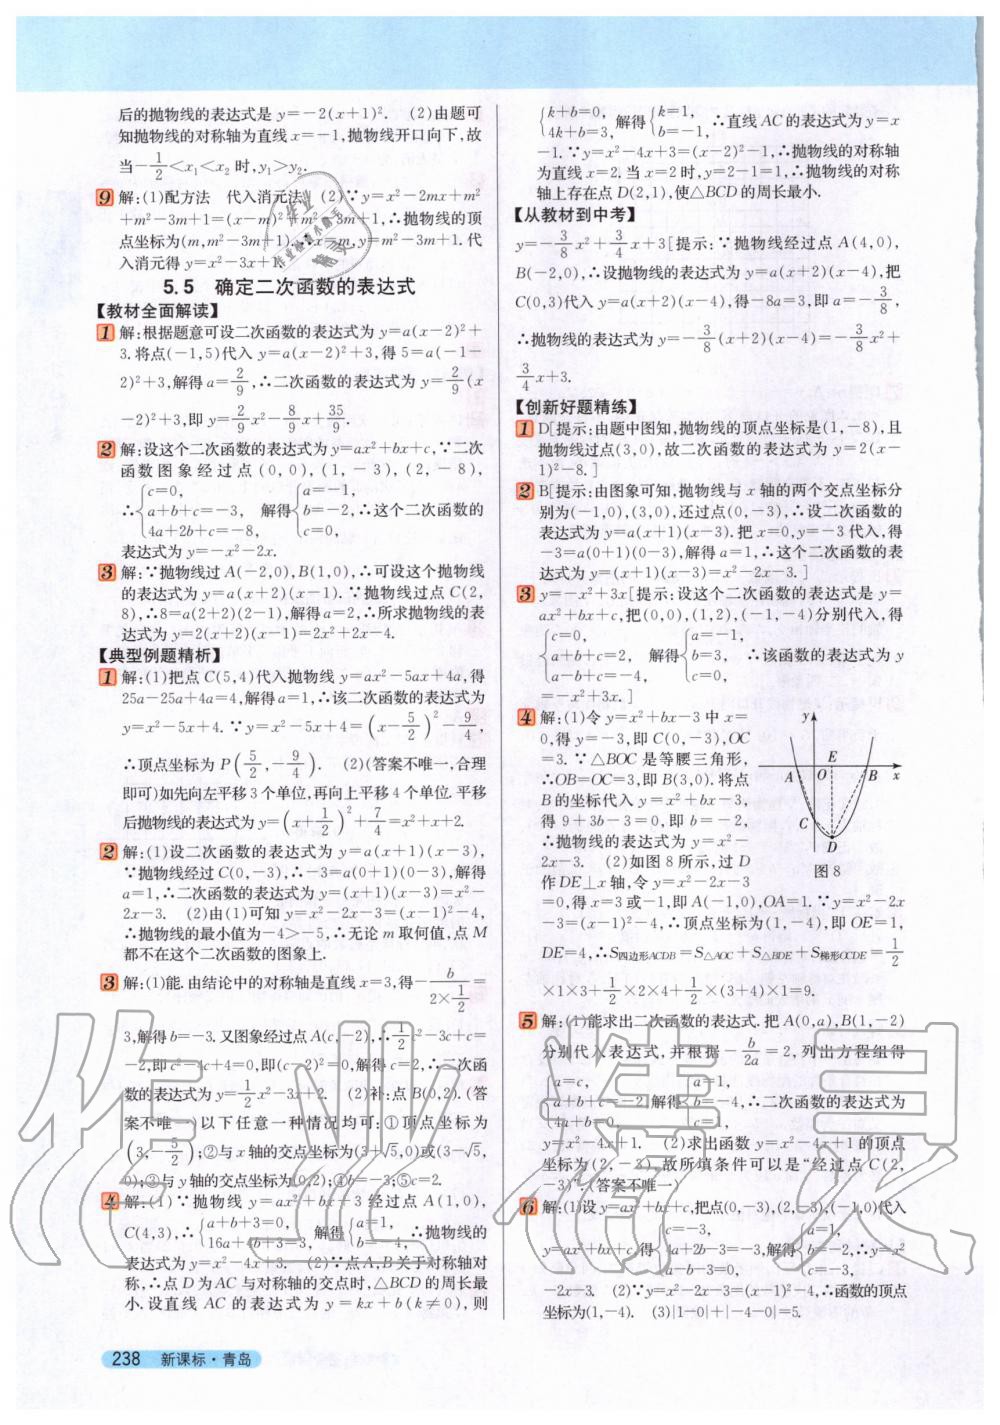 后的抛物线的表达式是 y=-2(x+1)². (2)由题可
知抛物线的对称轴为直线 x=-1,抛物线开口向下,故
当-1/2<x₁<x₂ 时,y₁>y₂.
9 解:(1)配方法 代入消元法 (2)∵y=x²-2mx+m²
+m²-3m+1=(x-m)²+m²-3m+1,∴抛物线的顶
点坐标为(m,m²-3m+1).∴x=m,y=m²-3m+1.代
入消元得 y=x²-3x+1.
5.5 确定二次函数的表达式
【教材全面解读】
1 解:根据题意可设二次函数的表达式为 y=a(x-2)²+
3.将点(-1,5)代入 y=a(x-2)²+3,得 5=a(-1-
2)²+3,解得 a=2/9,∴二次函数的表达式为 y=2/9(x
-2)²+3,即 y=2/9x²-8/9x+35/9.
2 解:设这个二次函数的表达式为 y=ax²+bx+c,∵二次
函数图象经过点(0,0),(1,-3),(2,-8),
∴{c=0, a+b+c=-3, 4a+2b+c=-8, 解得{a=-1, b=-2, c=0, ∴这个二次函数的
表达式为 y=-x²-2x.
3 解:∵抛物线过 A(-2,0),B(1,0),∴可设这个抛物线
的表达式为 y=a(x+2)(x-1).∵抛物线过点 C(2,
8),∴8=a(2+2)(2-1),解得 a=2,∴所求抛物线的表
达式为 y=2(x+2)(x-1)=2x²+2x-4.
【典型例题精析】
1 解:(1)把点 C(5,4)代入抛物线 y=ax²-5ax+4a,得
25a-25a+4a=4,解得 a=1,∴该二次函数的表达式为
y=x²-5x+4.∵y=x²-5x+4=(x-5/2)²-9/4,
∴顶点坐标为 P(5/2,-9/4). (2)(答案不唯一,合理
即可)如先向左平移 3 个单位,再向上平移 4 个单位.平移
后抛物线的表达式为 y=(x+1/2)²+7/4=x²+x+2.
2 解:(1)设二次函数的表达式为 y=a(x+1)(x-3),
∵抛物线经过 C(0,-3),∴-3=a(0+1)(0-3),解得
a=1,∴二次函数的表达式为 y=(x+1)(x-3)=x²-
2x-3. (2)由(1)可知 y=x²-2x-3=(x-1)²-4,
∴抛物线的最小值为-4>-5,∴无论 m 取何值,点 M
都不在这个二次函数的图象上.
3 解:(1)能.由结论中的对称轴是直线 x=3,得-b/(2×1/2)=
3,解得 b=-3.又图象经过点 A(c,-2),∴1/2c²-3c+c=
-2,即 c²-4c+4=0,即(c-2)²=0,解得 c=2,∴二次函
数的表达式为 y=1/2x²-3x+2. (2)补:点 B(0,2).(答
案不唯一)以下任意一种情况均可:①顶点坐标为
(3,-5/2);②与 x 轴的交点坐标为(3+√5,0)或(3-√5,
0);③与 y 轴的交点坐标为(0,2);④b=-3;⑤c=2.
4 解:(1)∵抛物线 y=ax²+bx+3 经过点 A(1,0),
C(4,3),∴{a+b+3=0, 16a+4b+3=3, 解得{a=1, b=-4, ∴抛物线的
表达式为 y=x²-4x+3. (2)∵点 A,B 关于对称轴对
称,∴点 D 为 AC 与对称轴的交点时,△BCD 的周长最
小.设直线 AC 的表达式为 y=kx+b(k≠0),则
{k+b=0, 4k+b=3, 解得{k=1, b=-1, ∴直线 AC 的表达式为 y=x
-1.∵y=x²-4x+3=(x-2)²-1,∴抛物线的对称轴
为直线 x=2.当 x=2 时,y=2-1=1,∴抛物线的对称
轴上存在点 D(2,1),使△BCD 的周长最小.
【从教材到中考】
y=-3/8x²+3/4x+3[提示:∵抛物线经过点 A(4,0),
B(-2,0),∴设抛物线的表达式为 y=a(x+2)(x-4),把
C(0,3)代入 y=a(x+2)(x-4),得-8a=3,即 a=-3/8,
∴抛物线的表达式为 y=-3/8(x+2)(x-4)=-3/8x²+
3/4x+3.
【创新好题精练】
1 D[提示:由题中图知,抛物线的顶点坐标是(1,-8),且
抛物线过点(3,0),故二次函数的表达式为 y=2(x-
1)²-8.]
2 B[提示:由图象可知,抛物线与 x 轴的两个交点坐标分
别为(-1,0),(3,0),还过点(0,-3),∴设二次函数的
表达式为 y=a(x+1)(x-3).把 x=0,y=-3 代入,得
-3=a(0+1)(0-3),解得 a=1,∴这个二次函数的表
达式为 y=(x+1)(x-3)=x²-2x-3.]
3 y=-x²+3x[提示:设这个二次函数的表达式是 y=
ax²+bx+c,把(0,0),(1,2),(-1,-4)分别代入,得
{c=0, a+b+c=2, a-b+c=-4, 解得{a=-1, b=3, c=0, ∴该函数的表达式为 y
=-x²+3x.]
4 解:(1)令 y=x²+bx-3 中 x=
0,得 y=-3,即 C(0,-3),OC
=3.∵△BOC 是等腰三角形,
∴OB=OC=3,即 B(3,0).将点
B 的坐标代入 y=x²+bx-3,
得 9+3b-3=0,即 b=-2,
∴抛物线的表达式为 y=x²-
2x-3. (2)如图 8 所示,过 D
作 DE⊥x 轴,令 y=x²-2x-3
=0,得 x=3 或-1,即 A(-1,0),OA=1.∵y=x²-2x
-3=(x-1)²-4,∴顶点坐标为(1,-4),即 OE=1,
DE=4,∴S四边形ACDB=S△AOC+S△BDE+S梯形OCDE=1/2
×1×3+1/2×2×4+1/2×(3+4)×1=9.
y
A O E B x
C
D
图 8
5 解:(1)能求出二次函数的表达式.把 A(0,a),B(1,-2)
分别代入表达式,并根据-b/2a=2,列出方程组得
{a=c, a+b+c=-2, -4a=b, 解得{a=1, b=-4, c=1, ∴二次函数的表达式为
y=x²-4x+1. (2)求出函数 y=x²-4x+1 的顶点
坐标为(2,-3),故所填条件可以是“经过点 C(2,
-3)”.(答案不唯一)
6 解:(1)设 y=ax²+bx+c,把点(0,-3),(2,-3),(-1,0)代入
y=ax²+bx+c,得{c=-3, 4a+2b-3=-3, a-b-3=0, 解得{a=1, b=-2, c=-3, ∴y=x²
-2x-3. (2)∵y=x²-2x-3=(x-1)²-4,∴函数的顶点
坐标为(1,-4). (3)|1-0|+|-4-0|=5.
238 新课标·青岛
作业精灵